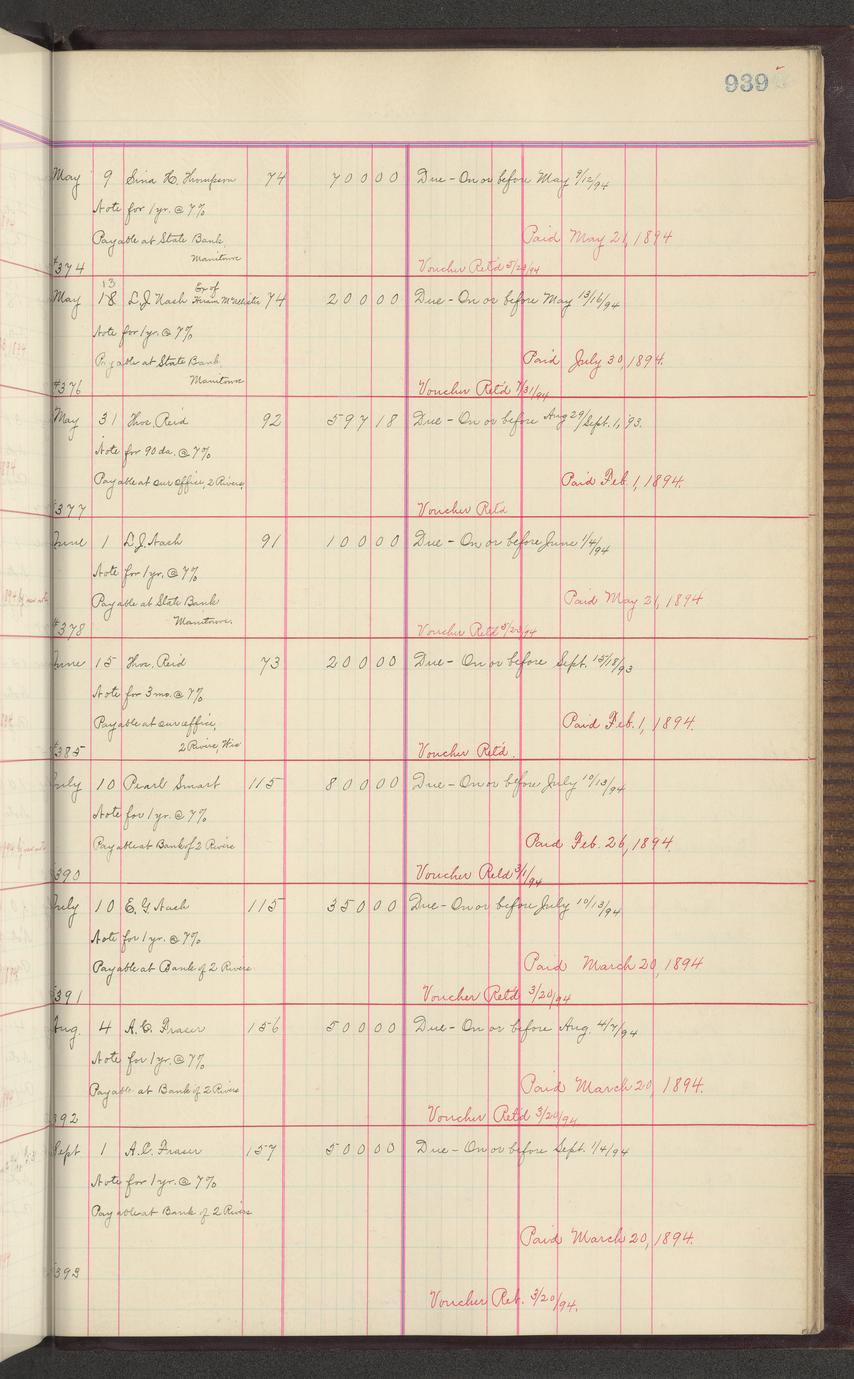 939
May 9 Sina H. Thompson 74 700 00 Due - On or before May 9/12/94
Note for 1 yr. @ 7%
Payable at State Bank, Paid May 21, 1894
Manitowoc
#374 Voucher Ret'd 5/23/94
13 Ex of
May 18 L. J. Nash Hiram McAllister 74 200 00 Due - On or before May 13/16/94
Note for 1 yr. @ 7%
Payable at State Bank Paid July 30, 1894.
Manitowoc
#376 Voucher Ret'd 7/31/94
May 31 Thos. Reid 92 597 18 Due - On or before Aug 29/Sept. 1, '93.
Note for 90 da. @ 7%
Payable at our office, 2 Rivers, Paid Feb. 1, 1894.
377 Voucher Ret'd
June 1 L. J. Nash 91 100 00 Due - On or before June 1/4/94
Note for 1 yr. @ 7%
Payable at State Bank Paid May 21, 1894
Manitowoc.
#378 Voucher Ret'd 5/23/94
June 15 Thos. Reid 73 200 00 Due - On or before Sept. 15/18/93
Note for 3 mo. @ 7%
Payable at our office, Paid Feb. 1, 1894.
2 Rivers, Wis
#385 Voucher Ret'd.
July 10 Pearl Smart 115 800 00 Due - On or before July 10/13/94
Note for 1 yr. @ 7%
Payable at Bank of 2 Rivers Paid Feb. 26, 1894.
390 Voucher Ret'd 3/1/94
July 10 E. G. Nash 115 350 00 Due - On or before July 10/13/94
Note for 1 yr. @ 7%
Payable at Bank of 2 Rivers Paid March 20, 1894
391 Voucher Ret'd 3/20/94
Aug. 4 A. C. Fraser 156 500 00 Due - On or before Aug. 4/7/94
Note for 1 yr. @ 7%
Payable at Bank of 2 Rivers Paid March 20, 1894.
392 Voucher Ret'd 3/20/94
Sept 1 A. C. Fraser 157 500 00 Due - On or before Sept. 1/4/94
Note for 1 yr. @ 7%
Payable at Bank of 2 Rivers
Paid March 20, 1894.
393
Voucher Ret. 3/20/94.